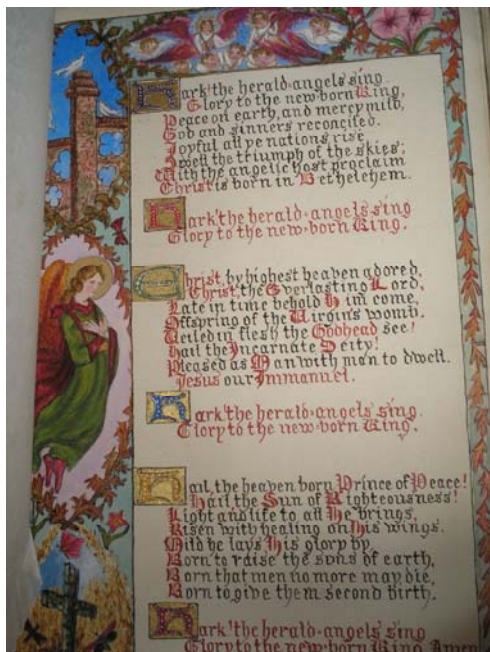 Hark! the herald-angels sing
Glory to the new-born King,
Peace on earth, and mercy mild,
God and sinners reconciled.
Joyful all ye nations rise
Join the triumph of the skies;
With the angelic host proclaim
Christ is born in Bethelehem.
Hark! the herald-angels sing
Glory to the new-born King.
Christ, by highest heaven adored,
Christ, the Everlasting Lord,
Late in time behold Him come,
Offspring of the Virgin's womb.
Veiled in flesh the Godhead see!
Hail the Incarnate Deity!
Pleased as Man with man to dwell.
Jesus our Immanuel.
Hark! the herald-angels sing.
Glory to the new-born King.
Hail, the heaven born Prince of Peace!
Hail the Sun of Righteousness!
Light and life to all He brings,
Risen with healing on His wings.
Mild he lays His glory by
Born to raise the sons of earth,
Born that men no more may die,
Born to give them second birth.
Hark! the herald-angels sing
Glory to the new-born King Amen